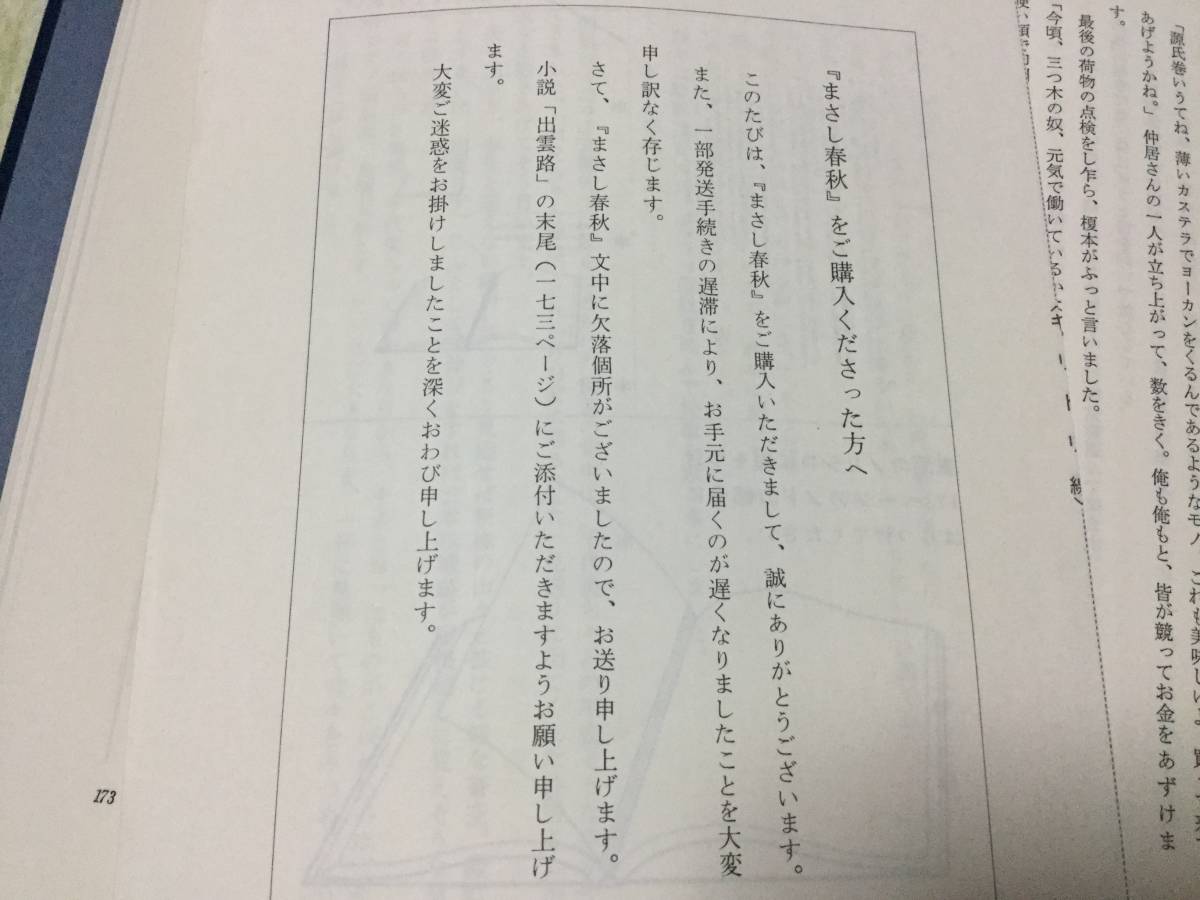 「源氏巻いうてね、薄いカステラでヨーカンをくるんであるようなモノ、これも美味しいよ。
あげようかね。」仲居さんの一人が立ち上がって、数をきく。俺も俺もと、皆が競ってお金をあずけま
す。
最後の荷物の点検をし乍ら、榎本がふっと言いました。
「今頃、三つ木の奴、元気で働いているか
『まさし春秋』をご購入くださった方へ
このたびは、『まさし春秋』をご購入いただきまして、誠にありがとうございます。
また、一部発送手続きの遅滞により、お手元に届くのが遅くなりましたことを大変
申し訳なく存じます。
さて、『まさし春秋』文中に欠落個所がございましたので、お送り申し上げます。
小説「出雲路」の末尾(一七三ページ)にご添付いただきますようお願い申し上げ
ます。
大変ご迷惑をお掛けしましたことを深くおわび申し上げます。
173